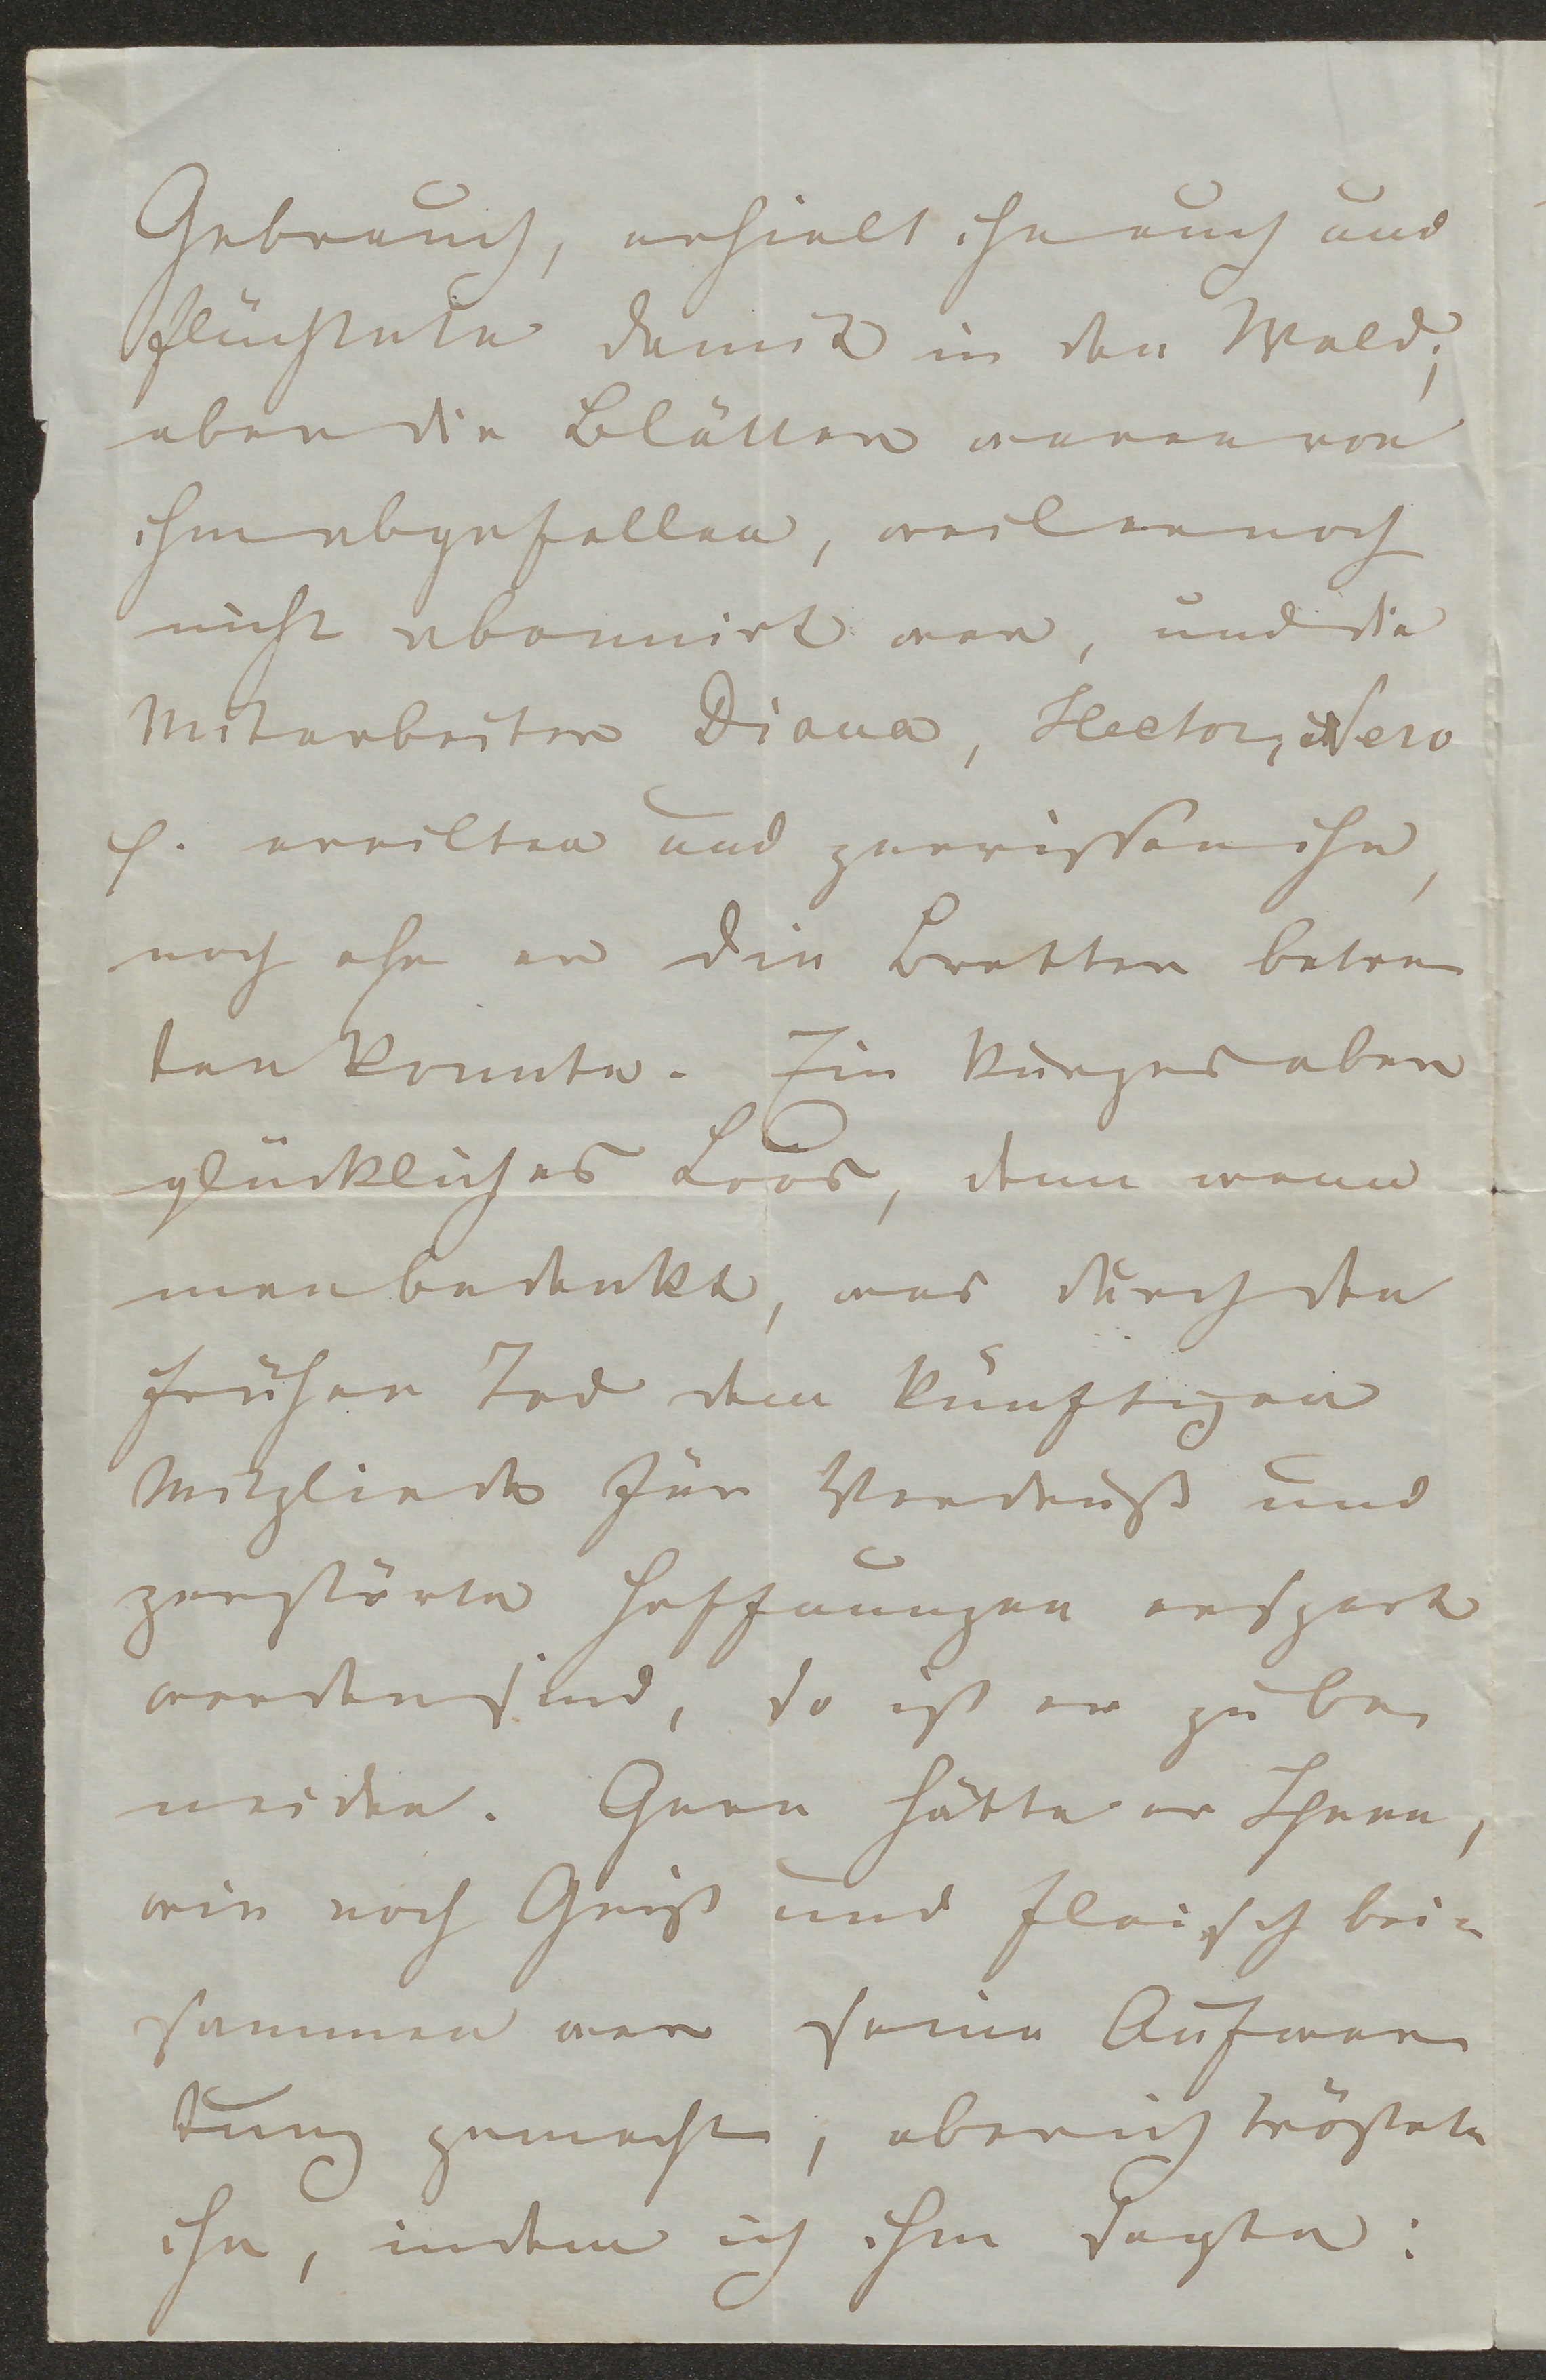 Gebrauch, erhielt ihn auch und
flüchtete damit in den Wald;
aber die Blätter waren von
ihm abgefallen, weil er noch
nicht abonnirt war, und die
Mitarbeiter Diana, Hector, Nero
p. ereilten und zerrissen ihn,
noch ehe er die Bretter betre
ten konnte. Ein kurzes aber
glückliches Loos, denn wenn
man bedenkt, was durch den
frühen Tod dem künftigen
Mitgliede für Verdruß und
zerstörte Hoffnungen erspart
worden sind, so ist er zu be
neiden. Gern hätte er Ihnen,
wie noch Geist und Fleisch bei-
sammen war seine Aufwar
tung gemacht, aber ich tröstete
ihn, indem ich ihm sagte: